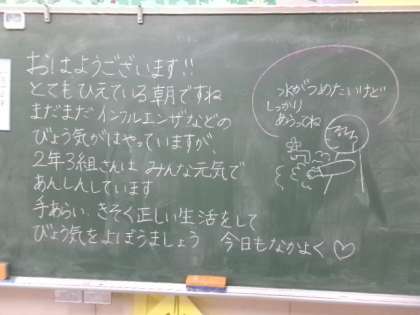 おはようございます!!
とてもひえている朝ですね
まだまだインフルエンザなどの
びょう気がはやっていますが、
2年3組さんは みんな元気で
あんしんしています
手あらい、きそく正しい生活をして
びょう気をよぼうましょう 今日もなかよく♡
水がつめたいけど
しっかり
あらってね